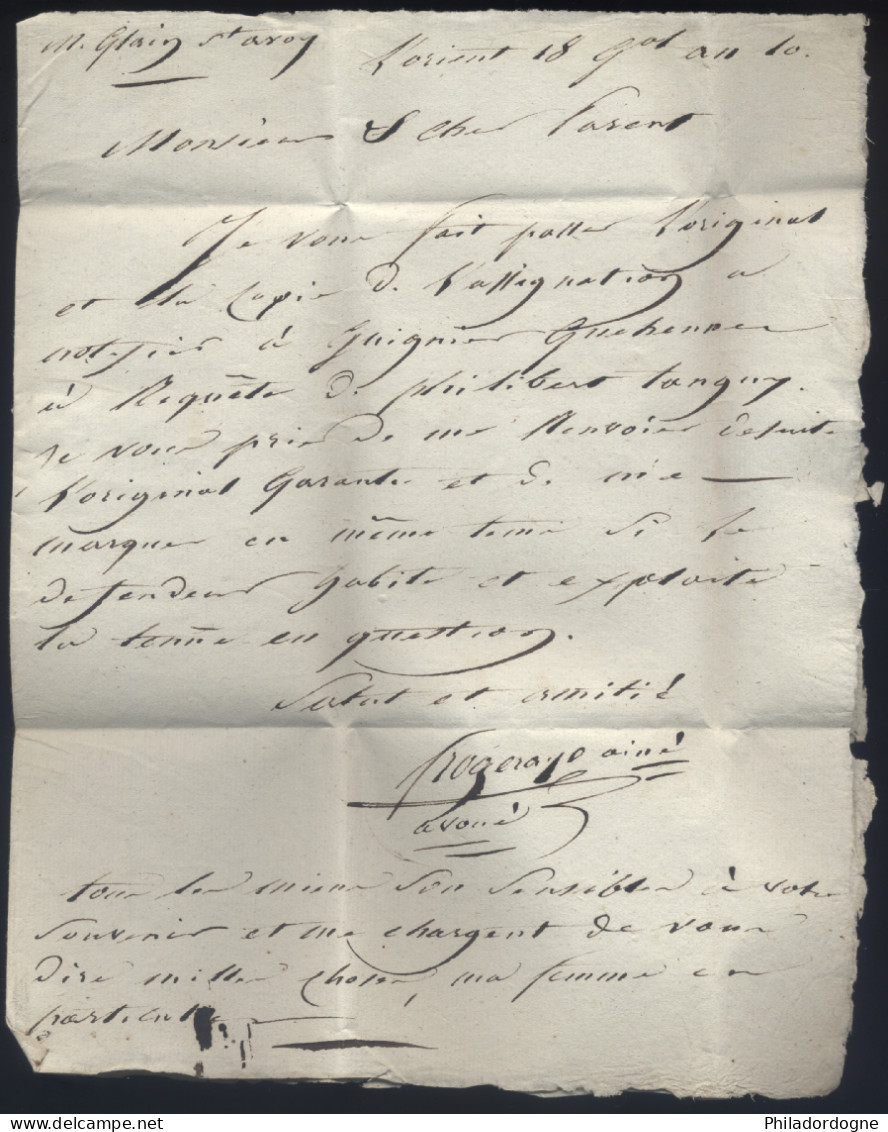 M. Glain St avoy
L'orient 18 gal an 10.
Monsieur & cher Parent
Je vous fait passer l'original
et la copie de l'assignation a
notifier à Guignier Guehenne
à Requête de philibert tanguy.
Je vous prie de me Renvoier desuite
l'original Garanti et de me
marquer en même tems si le
defendeur habite et exploite
la tenüe en question.
Salut et amitié
Frogeraye ainé
avoué
tous les miens son sensibles à votre
souvenir et me chargent de vous
dire mille choses, ma femme en
particulier
Philadordogne